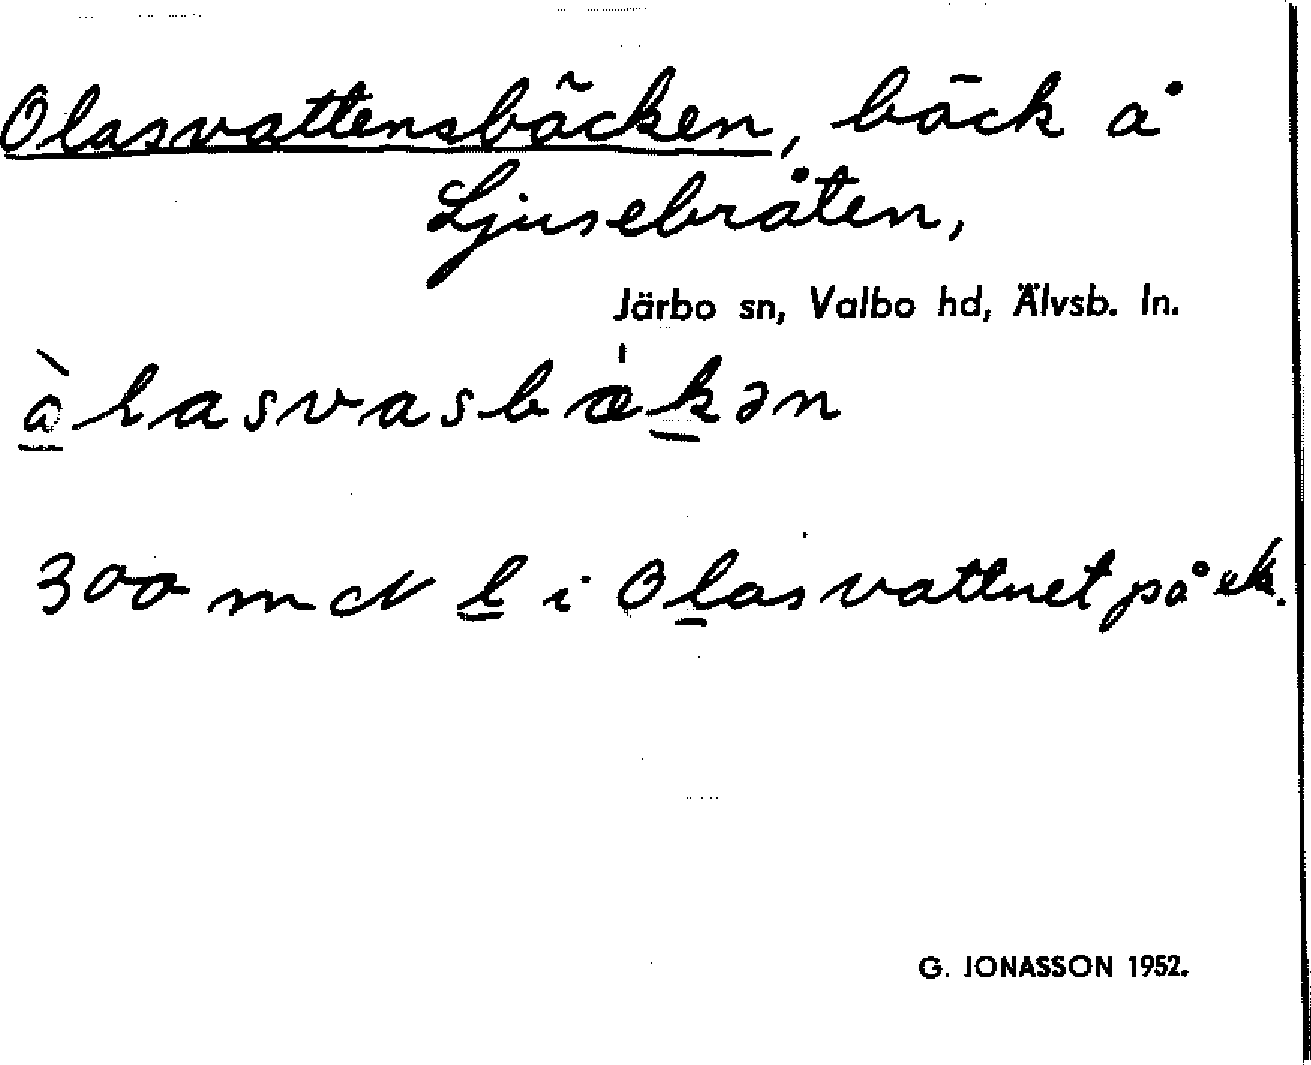 Olasvattensbäcken, bäck å
Ljusebråten,
Järbo sn, Valbo hd, Älvsb. ln.
àlasvasbækən
300 m N l i Olasvattnet på ek.
G. JONASSON 1952.